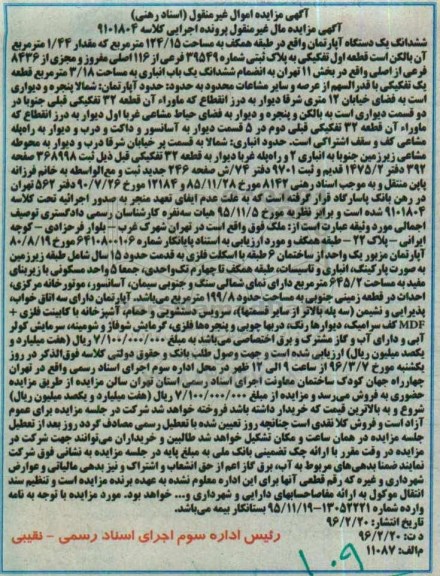 آگهی مزایده اموال غیرمنقول (اسناد رهنی)
آگهی مزایده مال غیرمنقول پرونده اجرایی کلاسه ۹۱۰۱۸۰۴
ششدانگ یک دستگاه آپارتمان واقع در طبقه همکف به مساحت ۱۲۴/۱۵ مترمربع که مقدار ۱/۴۴ مترمربع
آن بالکن است قطعه اول تفکیکی به پلاک ثبتی شماره ۳۹۵۴۹ فرعی از ۱۱۶ اصلی مفروز و مجزی از ۸۴۳۶
فرعی از اصلی واقع در بخش ۱۱ تهران به انضمام ششدانگ یک باب انباری به مساحت ۳/۱۸ مترمربع قطعه
یک تفکیکی با قدرالسهم از عرصه و سایر مشاعات محدود به حدود: حدود آپارتمان: شمالا پنجره و دیواری
است به فضای خیابان ۱۲ متری شرقا دیوار به درز انقطاع که ماوراء آن قطعه ۳۲ تفکیکی قبلی جنوبا در
دو قسمت دیواری است به بالکن و پنجره و دیوار به فضای حیاط مشاعی غربا اول دیوار به درز انقطاع که
ماوراء آن قطعه ۳۲ تفکیکی قبلی دوم در ۵ قسمت دیوار به آسانسور و داکت و درب و دیوار به راه‌پله
مشاعی کف و سقف اشتراکی است. حدود انباری: شمالا به قسمت پر خیابان شرقا درب و دیوار به محوطه
مشاعی زیرزمین جنوبا به انباری ۲ و راه‌پله غربا دیوار به قطعه ۳۲ تفکیکی قبل ذیل ثبت ۳۶۸۹۹۸ صفحه
۳۹۲ دفتر ۱۴۷۵/۲ قدیم و ثبت ۹۷۰۱ دفتر ۷۴/ش صفحه ۲۴۶ جدید ثبت و مع‌الواسطه به خانم فرزانه
پاپن منتقل و به موجب اسناد رهنی ۸۱۴۲ مورخ ۸۵/۱۱/۲۸ و ۱۲۱۸۴ مورخ ۹۰/۷/۲۶ دفتر ۵۶۲ تهران
در رهن بانک پاسارگاد قرار گرفته است که به علت عدم ایفای تعهد منجر به صدور اجرائیه تحت کلاسه
۹۱۰۱۸۰۴ شده است و برابر نظریه مورخ ۹۵/۱۱/۵ هیات سه‌نفره کارشناسان رسمی دادگستری توصیف
اجمالی مورد وثیقه عبارت است از: ملک فوق واقع است در تهران شهرک غرب - بلوار فرحزادی - کوچه
ایرانی - پلاک ۲۲ - طبقه همکف و مورد ارزیابی به استناد پایانکار شماره ۶۴۱۰۸۰۰۱۰۶ مورخ ۸۰/۸/۱۹
آپارتمان مزبور یک واحد از ساختمان ۶ طبقه با اسکلت فلزی به قدمت حدود ۱۵ سال شامل طبقه زیرزمین
به صورت پارکینگ، انباری و تاسیسات، طبقه همکف تا چهارم تک‌واحدی، جمعا ۵ واحد مسکونی با زیربنای
مفید به مساحت ۶۴۵/۲ مترمربع دارای نمای شمالی سنگ و جنوبی سیمان، آسانسور، موتورخانه مرکزی،
احداث در قطعه زمینی جنوبی به مساحت حدود ۱۹۹/۸ مترمربع می‌باشد. آپارتمان دارای سه اتاق خواب،
پذیرایی و نشیمن (سه پله بالاتر از سایر قسمتها)، سرویس دستشویی و حمام، آشپزخانه با کابینت فلزی +
MDF کف سرامیک، دیوارها رنگ، دربها چوبی و پنجره‌ها فلزی، گرمایش شوفاژ و شومینه، سرمایش کولر
آبی و دارای آب و گاز مشترک و برق اختصاصی می‌باشد به مبلغ ۷/۱۰۰/۰۰۰/۰۰۰ ریال (هفت میلیارد و
یکصد میلیون ریال) ارزیابی شده است و جهت وصول طلب بانک و حقوق دولتی کلاسه فوق‌الذکر در روز
یکشنبه مورخ ۹۶/۳/۷ از ساعت ۹ الی ۱۲ ظهر در محل اداره سوم اجرای اسناد رسمی واقع در تهران
چهارراه جهان کودک ساختمان معاونت اجرای اسناد رسمی استان تهران سالن مزایده از طریق مزایده
حضوری به فروش می‌رسد و مزایده از مبلغ ۷/۱۰۰/۰۰۰/۰۰۰ ریال (هفت میلیارد و یکصد میلیون ریال)
شروع و به بالاترین قیمت که خریدار داشته باشد فروخته خواهد شد شرکت در جلسه مزایده برای عموم
آزاد است و فروش کلا نقدی است چنانچه روز تعیین شده با تعطیل رسمی مصادف گردد روز بعد از تعطیل
جلسه مزایده در همان ساعت و مکان تشکیل خواهد شد طالبین و خریداران می‌توانند جهت شرکت در
مزایده در وقت مقرر با ارائه چک تضمینی بانک ملی به مبلغ پایه در جلسه مزایده به نشانی فوق شرکت
نمایند ضمنا بدهی‌های مربوط به آب، برق گاز اعم از حق انشعاب و اشتراک و نیز بدهی مالیاتی و عوارض
شهرداری و غیره که رقم قطعی آنها برای این اداره معلوم نشده به عهده برنده مزایده است و تنظیم سند
انتقال موکول به ارائه مفاصاحسابهای دارایی و شهرداری و... خواهد بود. مورد مزایده با توجه به نامه
وارده شماره ۱۳۰۵۲۲۲۱-۹۵/۱۱/۱۹ بستانکار بیمه می‌باشد.
تاریخ انتشار: ۹۶/۲/۲۰
د ت: ۹۶/۲/۲۰
م‌الف: ۱۱۰۸۷
رئیس اداره سوم اجرای اسناد رسمی - نقیبی
۱۰۹